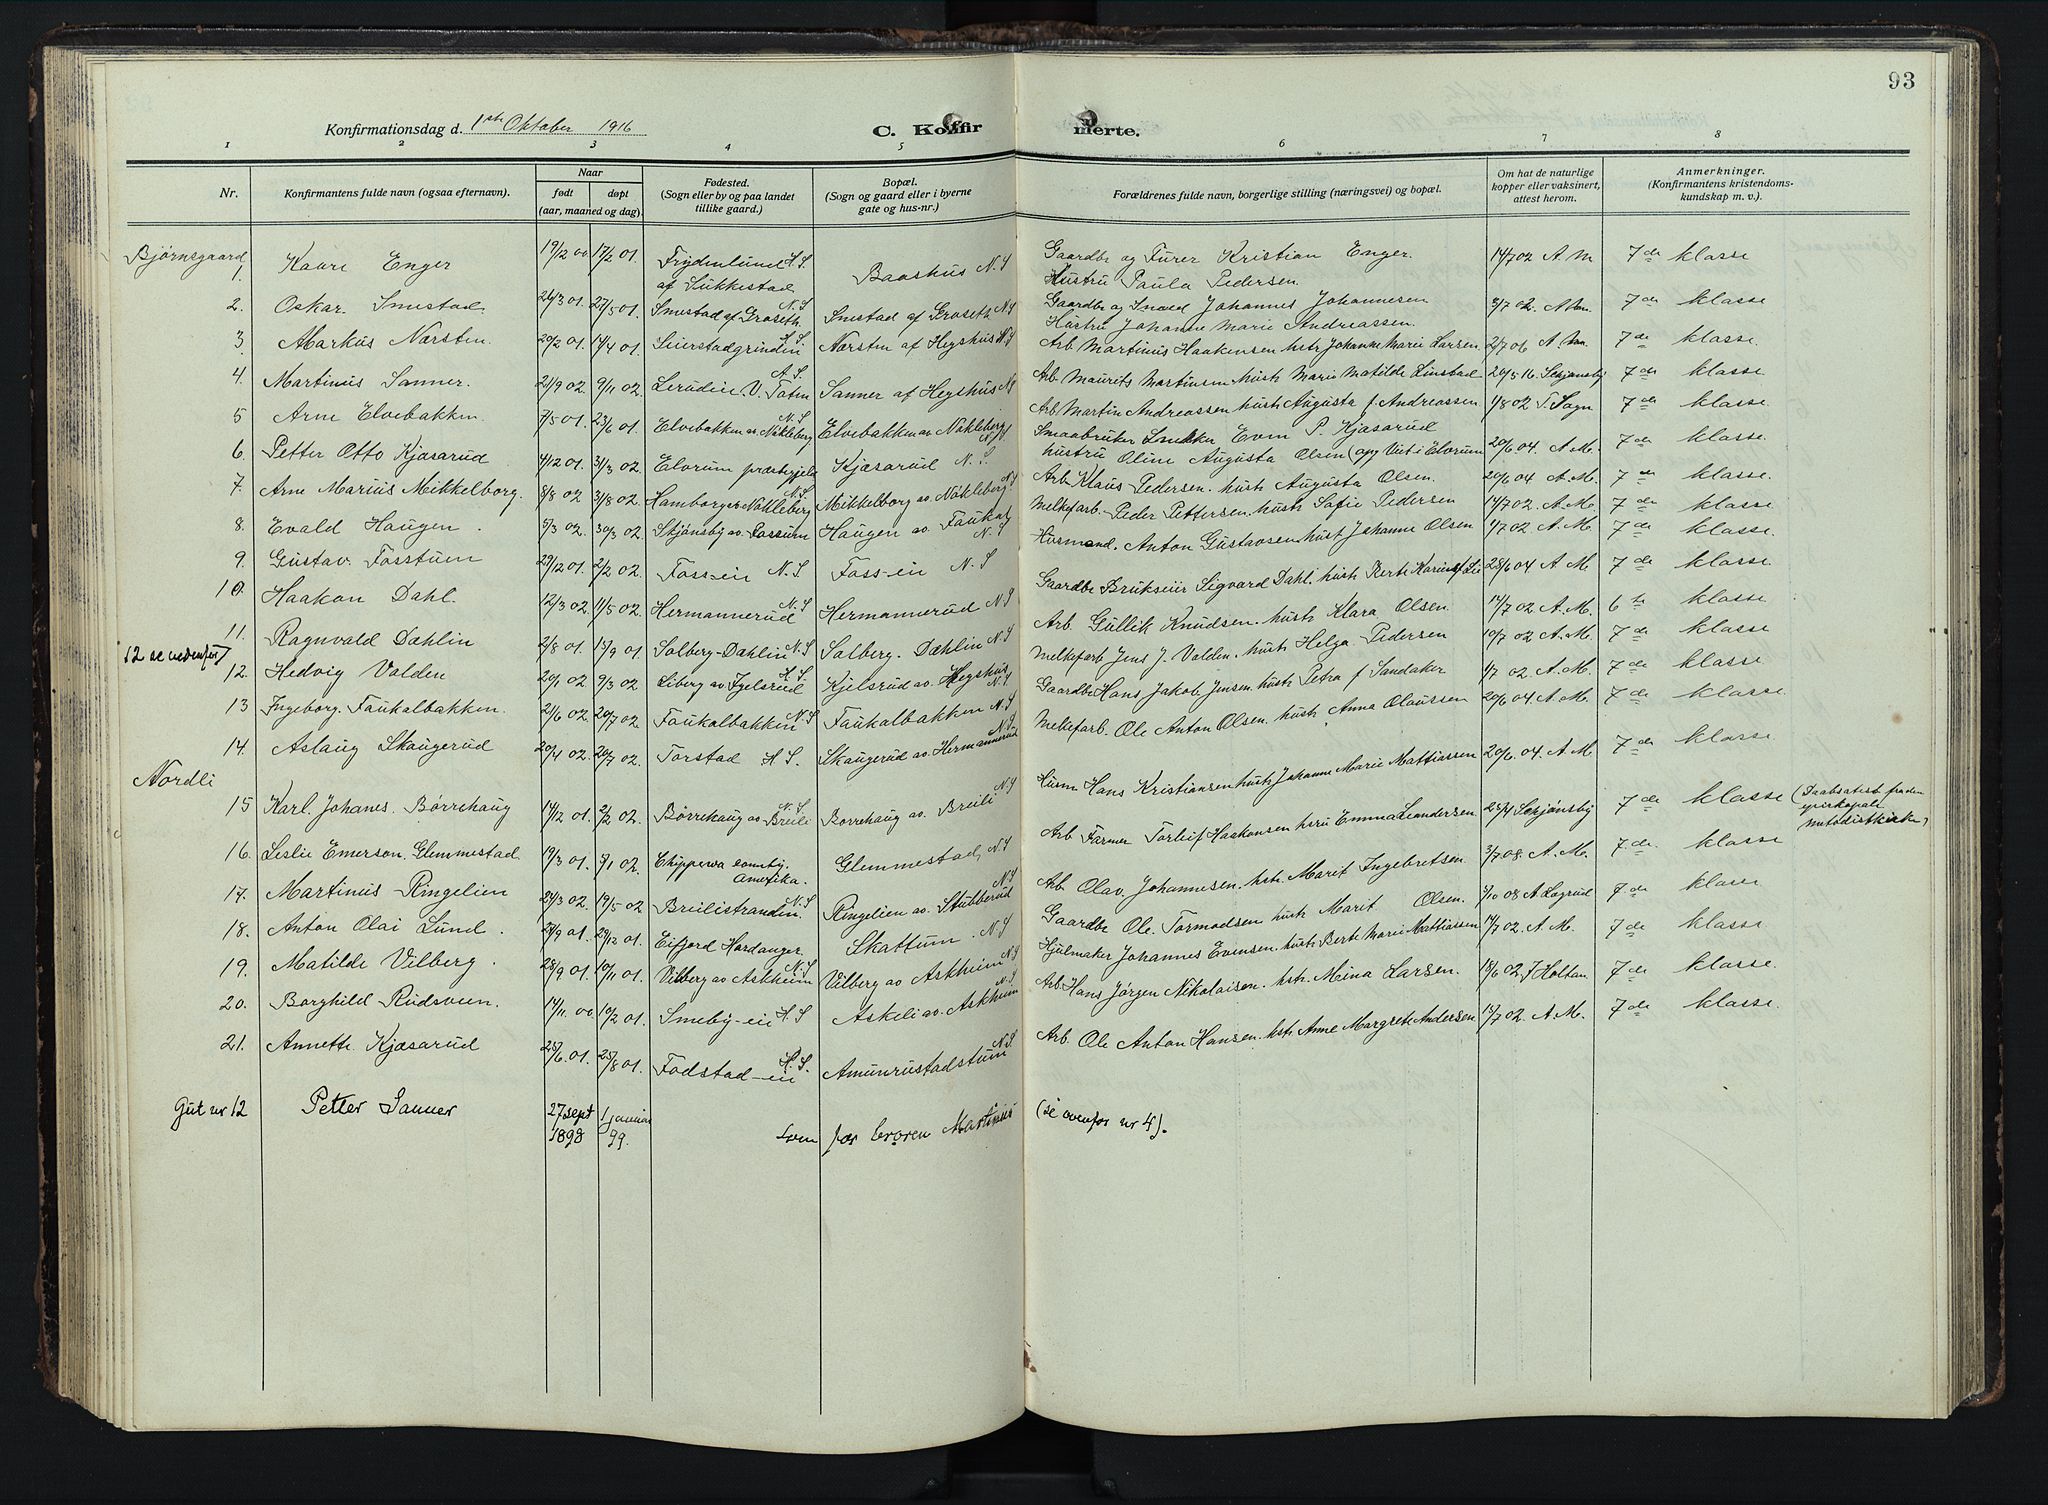 93
Konfirmationsdag d. 1ste Oktober 1916
C. Konfirmerte.
1 2 3 4 5 6 7 8
Nr. Konfirmantens fulde navn (ogsaa efternavn). Naar født døpt (aar, maaned og dag). Fødested. (Sogn eller by og paa landet tillike gaard.) Bopæl. (Sogn og gaard eller i byerne gate og hus-nr.) Forældrenes fulde navn, borgerlige stilling (næringsvei) og bopæl. Om hat de naturlige kopper eller vaksinert, attest herom. Anmerkninger. (Konfirmantens kristendomskundskap m. v.).
Bjørnsgaard
1. Kaare Enger 19/12 00. 17/2 01. Frydenlund H.S. af Lukkestad Baashus N.S Gaardbr og Furer Kristian Enger. Hustru Paula Pedersen 14/7 02 A. M 7de klasse
2. Oskar Smestad 26/3 01. 27/5 01. Smestad af Groseth N.S Smestad af Groseth N.S Gaardbr og Smed Johannes Johannesen Hustru Johanne Marie Andreassen. 3/7 02. A. M. 7de klasse
3. Markus Nærsten. 20/2 01 14/4 01. Seierstadgrinden H.S. Nærsten af Hegshus N.S Arb. Martinus Haakensen hstr Johanne Marie Larsen 2/7 06 A. M. 7de klasse.
4. Martinus Sanner. 21/9 02. 9/11 02. Lerudeie V. Toten Sanner af Hegshus N.S Arb Maurits Martinsen hustr Marie Matilde Linstad 20/5 16. Skjønsby 7de klasse
5 Arne Elvebakken 7/5 01. 23/6 01. Elvebakken av Nøkleberg N.S Elvebakken av Nøkleberg N.S. Arb. Martin Andreassen hustr Augusta f. Andreassen 1/8 02 T. Sogn 7de klasse.
6. Petter Otto Kjæsarud 4/12 01. 31/3 02. Elvrum præstegjeld Kjæsarud N.S. Smaabruker Snekker Even P. Kjæsarud hustru Oline Augusta Olsen (opg Viet i Elvrum 20/6 04. A. M. 7de klasse.
7. Arne Marius Mikkelborg. 8/8 02 31/8 02. Hamborgen Nøkleberg N.S. Mikkelborg av Nøkleberg N.S Arb. Klaus Pedersen. hustr Augusta Olsen. 20/6 04 A. M. 7de klasse.
8. Evald Haugen. 5/3 02. 30/3 02. Skjønsby av Fossum Haugen av Faukal N.S Melkefarb. Peder Pettersen. hustr Sofie Pedersen 14/7 02. A. M. 7de klasse
9. Gustav Fosstum 29/12 01. 2/2 02. Foss-ein N.S Foss-ein N.S Husmand. Anton Gustavsen hust Johanne Olsen 1/7 02. A. M. 7de klasse.
10. Haakon Dahl. 12/3 02. 11/5 02. Hermannerud N.S Hermannerud N.S Gaardbr Brukseier Sigvard Dahl. hustr Berte Karine f Lie 28/6 04 A. M. 7de klasse.
11. Ragnvald Dæhlin 2/8 01. 15/9 01. Solberg-Dæhlin N.S Solberg. Dæhlin N.S Arb. Gullik Knudsen. hustr Klara Olsen. 14/7 02. A. M. 6te klasse
12 se nedenfor)
12. Hedvig Valden 20/1 02 9/3 02 Liberg av Igelsrud H.S. Kjelsrud av Hegshus N.S Melkefarb Jens J. Valden. hustr Helga Pedersen 10/7 02 A. M. 7de klasse
13 Ingeborg. Faukalbakken. 21/6 02. 20/7 02. Faukalbakken N.S Faukalbakken N.S Gaardbr Hans Jakob Jensen hustr Petra f Sandaker 1/7 02. A. M. 7de klasse
14. Aslaug Skaugerud 20/4 02. 20/7 02. Torstad H.S. Skaugerud av Hermannerud N.S Melkefarb. Ole Anton Olsen. hustr Anna Olaussen 20/6 04 A. M. 7de klasse.
Nordli
15 Karl Johanes. Børrehaug 14/12 01. 2/2 02. Børrehaug av Breili N.S Børrehaug av. Breili N.S Husm Hans Kristiansen hustr Johanne Marie Mattiassen 20/6. 04. A. M. 7de klasse
16. Leslie Emerson. Glemmestad. 19/3 01. 7/1 02. Chippewa county. Amerika. Glemmestad, N.S Arb Farmer Torleif Haakonsen hsru Emma Leandersen 25/4 Skjønsby 7de klasse (Daabsattest fra den episkopale Metodistkirke)
17. Martinus Ringelien 24/3 02. 19/5 02 Breilistranden. N.S Ringelien av. Stubberud N.S Arb Olav. Johannesen. hstr. Marit Ingebretsen 3/7 08. A. M. 7.de. klasse
18. Anton Olai Lund. 28/9 01. 29/12 01. Eifjord Hardanger. Skattum. N.S Gaardbr Ole. Tormodsen hustr Marit Olsen. 7/10 08 A Løgrud 7de klasse
19. Matilde Vilberg. 28/9 01. 10/11 01. Vilberg av Askheim N.S Vilberg av Askheim N.S Hjulmaker Johannes Evensen. hustr Berte Marie Mattiassen 14/7 02. A. M. 7de klasse.
20. Borghild Rudsveen. 14/11. 00 10/2 01. Smeby-eie H.S Askeli av. Askheim N.S Arb. Hans Jørgen Nikolaisen. hstr. Mina Larsen. 18/6 02. J Holtan 7de klasse.
21. Annette Kjæsarud 25/6 01. 25/8 01. Fodstad-eie H.S. Amunrustadstuen N.S Arb. Ole Anton Hansen. hstr. Anne Margrete Andersen 14/7 02. A. M. 7de klasse.
Gut nr 12 Petter Sanner 27 sept 1898 1 januar 99. som for broren Martinus (se ovenfor nr 4).